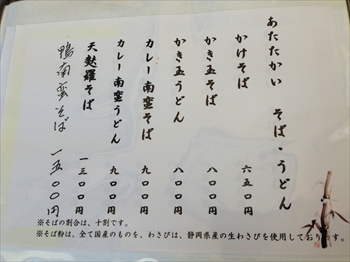 あたたかい　そば・うどん
かけそば　六五〇円
かき玉そば　八〇〇円
かき玉うどん　八〇〇円
カレー南蛮そば　九〇〇円
カレー南蛮うどん　九〇〇円
天麩羅そば　一三〇〇円
鴨南蛮そば　一五〇〇円
※そばの割合は、十割です。
※そば粉は、全て国産のものを、わさびは、静岡県産の生わさびを使用しております。